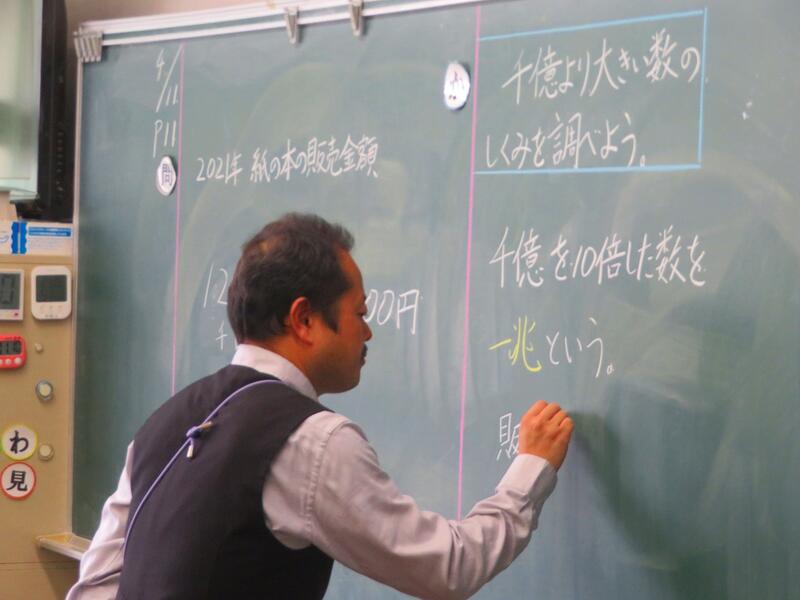 4/11
P11
問
2021年 紙の本の販売金額
1.2
00円
千
か
千億より大きい数の
しくみを調べよう。
千億を10倍した数を
一兆という。
販
わ
見